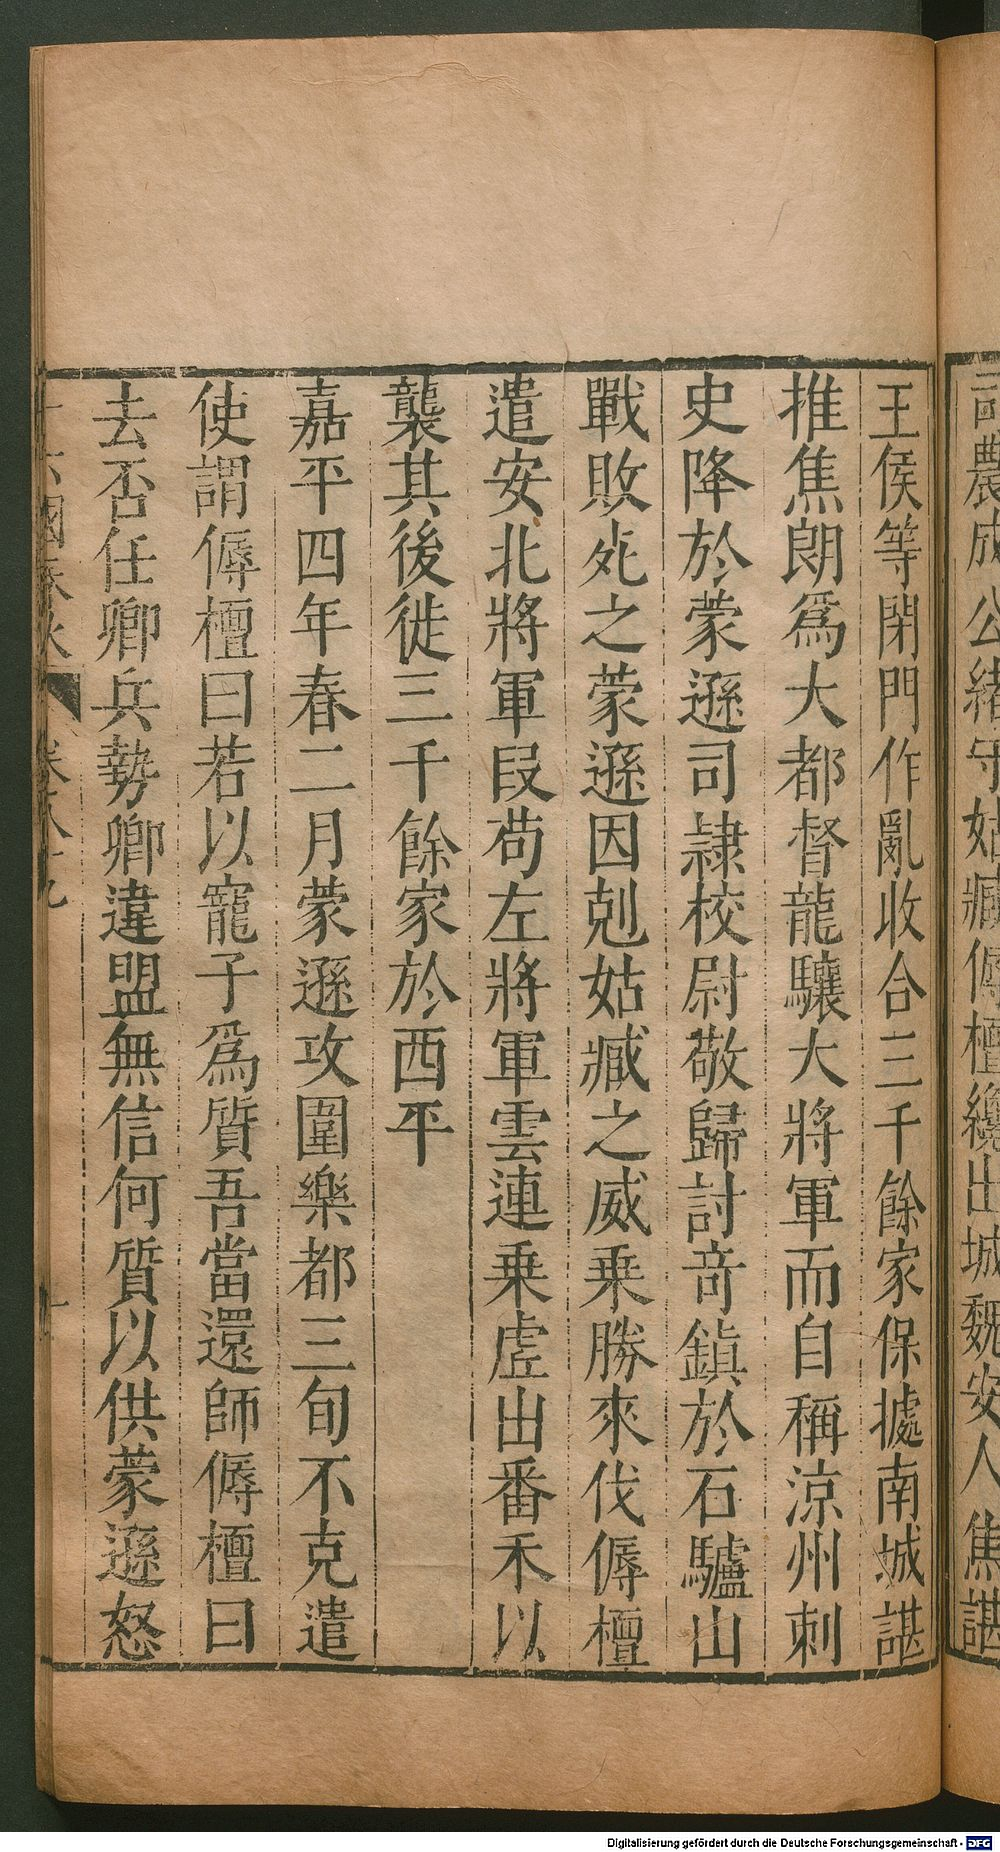 司農成公緒守姑臧傉檀纔出城魏安人焦諶
王侯等閉門作亂收合三千餘家保㨿南城諶
推焦朗爲大都督龍驤大將軍而自稱涼州刺
史降於蒙遜司隷校尉敬歸討竒鎮於石驢山
戰敗死之蒙遜因剋姑臧之威乗勝來伐傉檀
遣安北將軍段苟左將軍雲連乗虛出番禾以
襲其後徙三千餘家於西平
嘉平四年春二月蒙遜攻圍樂都三旬不克遣
使謂傉檀曰若以寵子爲質吾當還師傉檀曰
去否任卿兵勢卿違盟無信何質以供蒙遜怒
十六國春秋 卷八十九 十
Digitalisierung gefördert durch die Deutsche Forschungsgemeinschaft - DFG